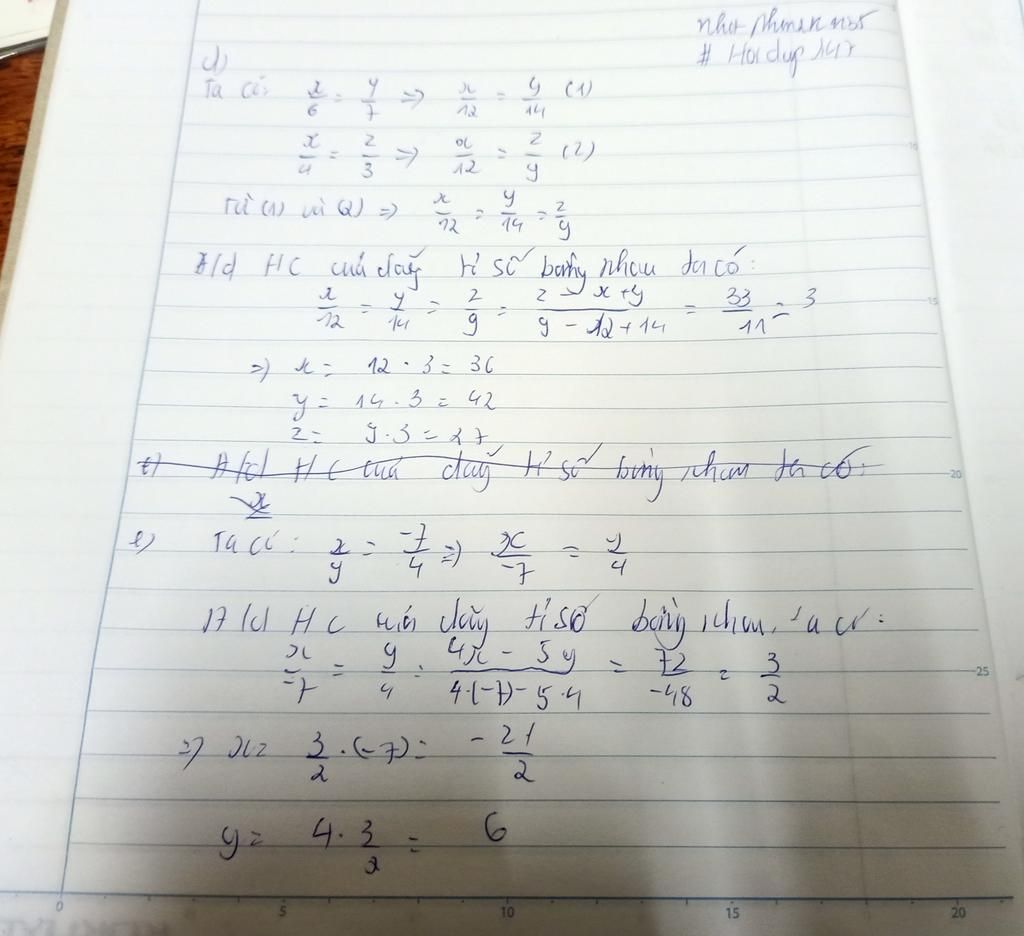 # Hoidap247
d)
Ta có: x/6 = y/7 => x/12 = y/14 (1)
x/4 = z/3 => x/12 = z/9 (2)
Từ (1) và (2) => x/12 = y/14 = z/9
A/d HC của dãy tỉ số bằng nhau ta có:
x/12 = y/14 = z/9 = (z - x + y)/(9 - 12 + 14) = 33/11 = 3
=> x = 12 . 3 = 36
y = 14 . 3 = 42
z = 9 . 3 = 27
e) A/d HC của dãy tỉ số bằng nhau ta có:
x
e) Ta có: x/y = -7/4 => x/-7 = y/4
A/d HC của dãy tỉ số bằng nhau, ta có:
x/-7 = y/4 = (4x - 5y)/(4.(-7) - 5.4) = 72/-48 = 3/2
=> x = 3/2 . (-7) = -21/2
y = 4 . 3/2 = 6
0 5 10 15 20
16
15
20
25